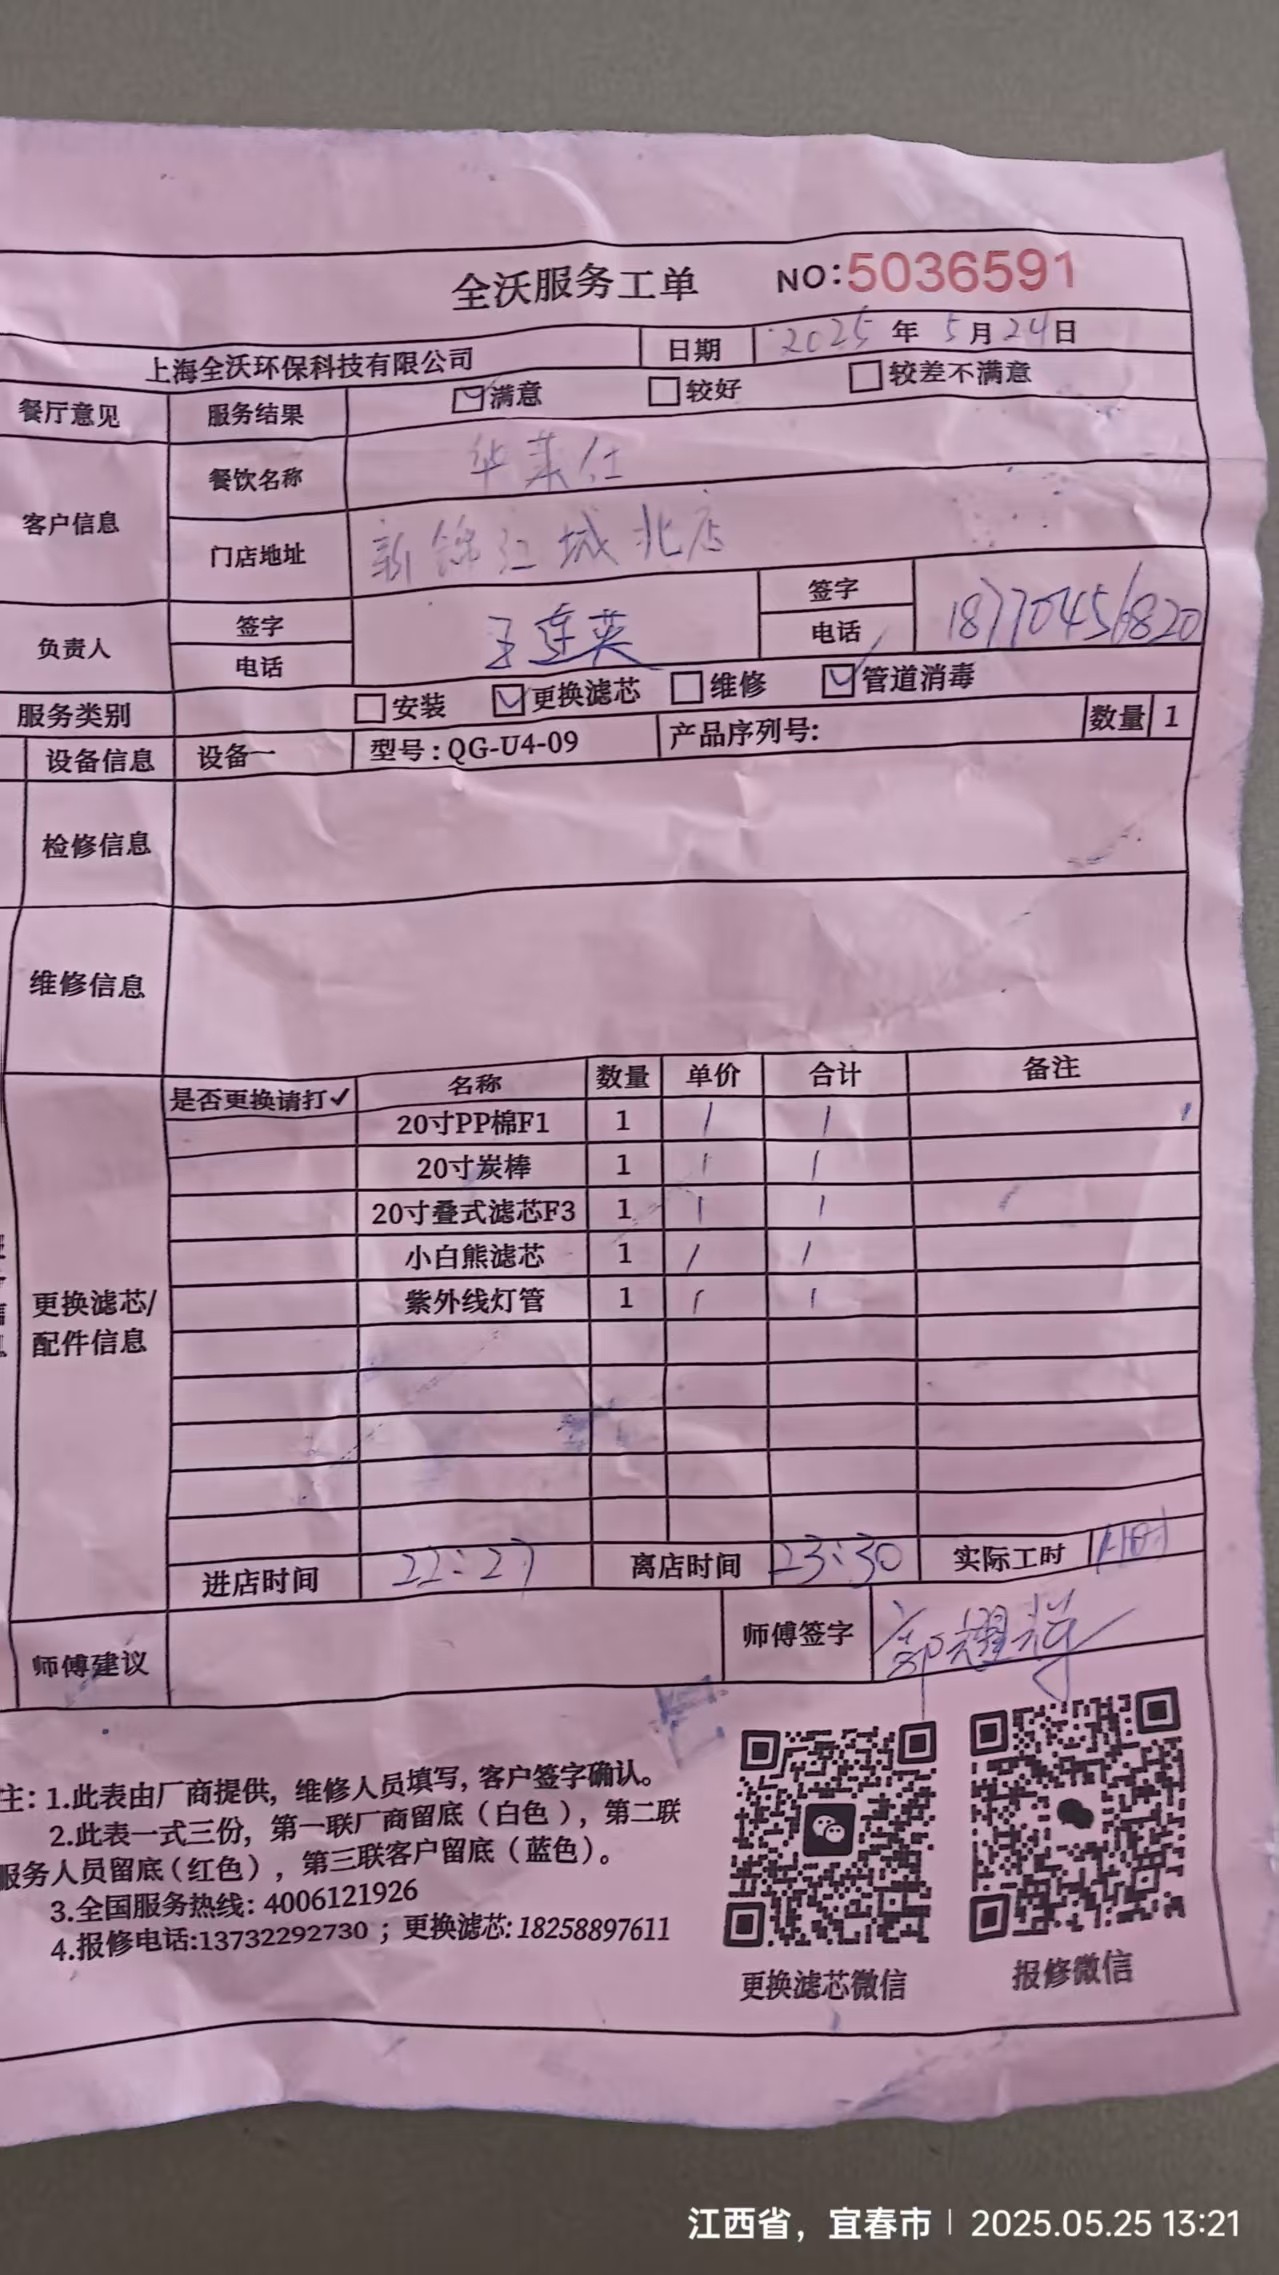 全沃服务工单 NO:5036591
上海全沃环保科技有限公司 日期 2025年5月24日
餐厅意见 服务结果 满意 较好 较差不满意
客户信息 餐饮名称 华莱仕
门店地址 新锦江城北店
负责人 签字 电话 王连英 签字 电话 18770456820
服务类别 安装 更换滤芯 维修 管道消毒
设备信息 设备一 型号:QG-U4-09 产品序列号: 数量 1
检修信息
维修信息
是否更换请打✓ 名称 数量 单价 合计 备注
20寸PP棉F1 1 / /
20寸炭棒 1 / /
20寸叠式滤芯F3 1 / /
小白熊滤芯 1 / /
更换滤芯/配件信息 紫外线灯管 1 / /
进店时间 22:27 离店时间 23:30 实际工时 1小时
师傅建议 师傅签字 郭耀辉
注:1.此表由厂商提供,维修人员填写,客户签字确认。
2.此表一式三份,第一联厂商留底(白色),第二联
服务人员留底(红色),第三联客户留底(蓝色)。
3.全国服务热线:4006121926
4.报修电话:13732292730;更换滤芯:18258897611
更换滤芯微信 报修微信
江西省,宜春市 | 2025.05.25 13:21